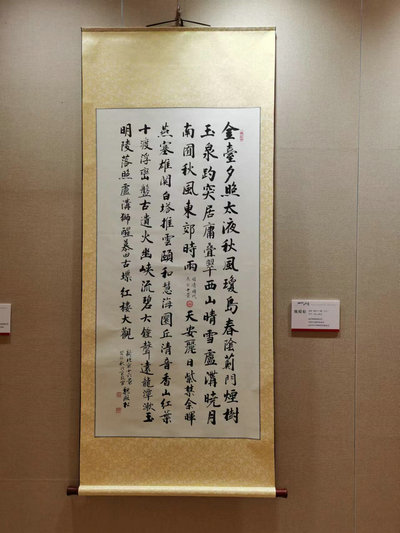 金臺夕照太液秋風瓊島春陰薊門煙樹
玉泉趵突居庸疊翠西山晴雪盧溝曉月
南囿秋風東郊時雨
天安麗日紫禁余暉
燕塞雄關白塔推雲頤和慧海圜丘清音香山紅葉
十渡浮巒盤古遺火幽峽流碧大鐘聲遠龍潭漱玉
明陵落照盧溝獅醒慕田古堞紅樓大觀
新北京十六景